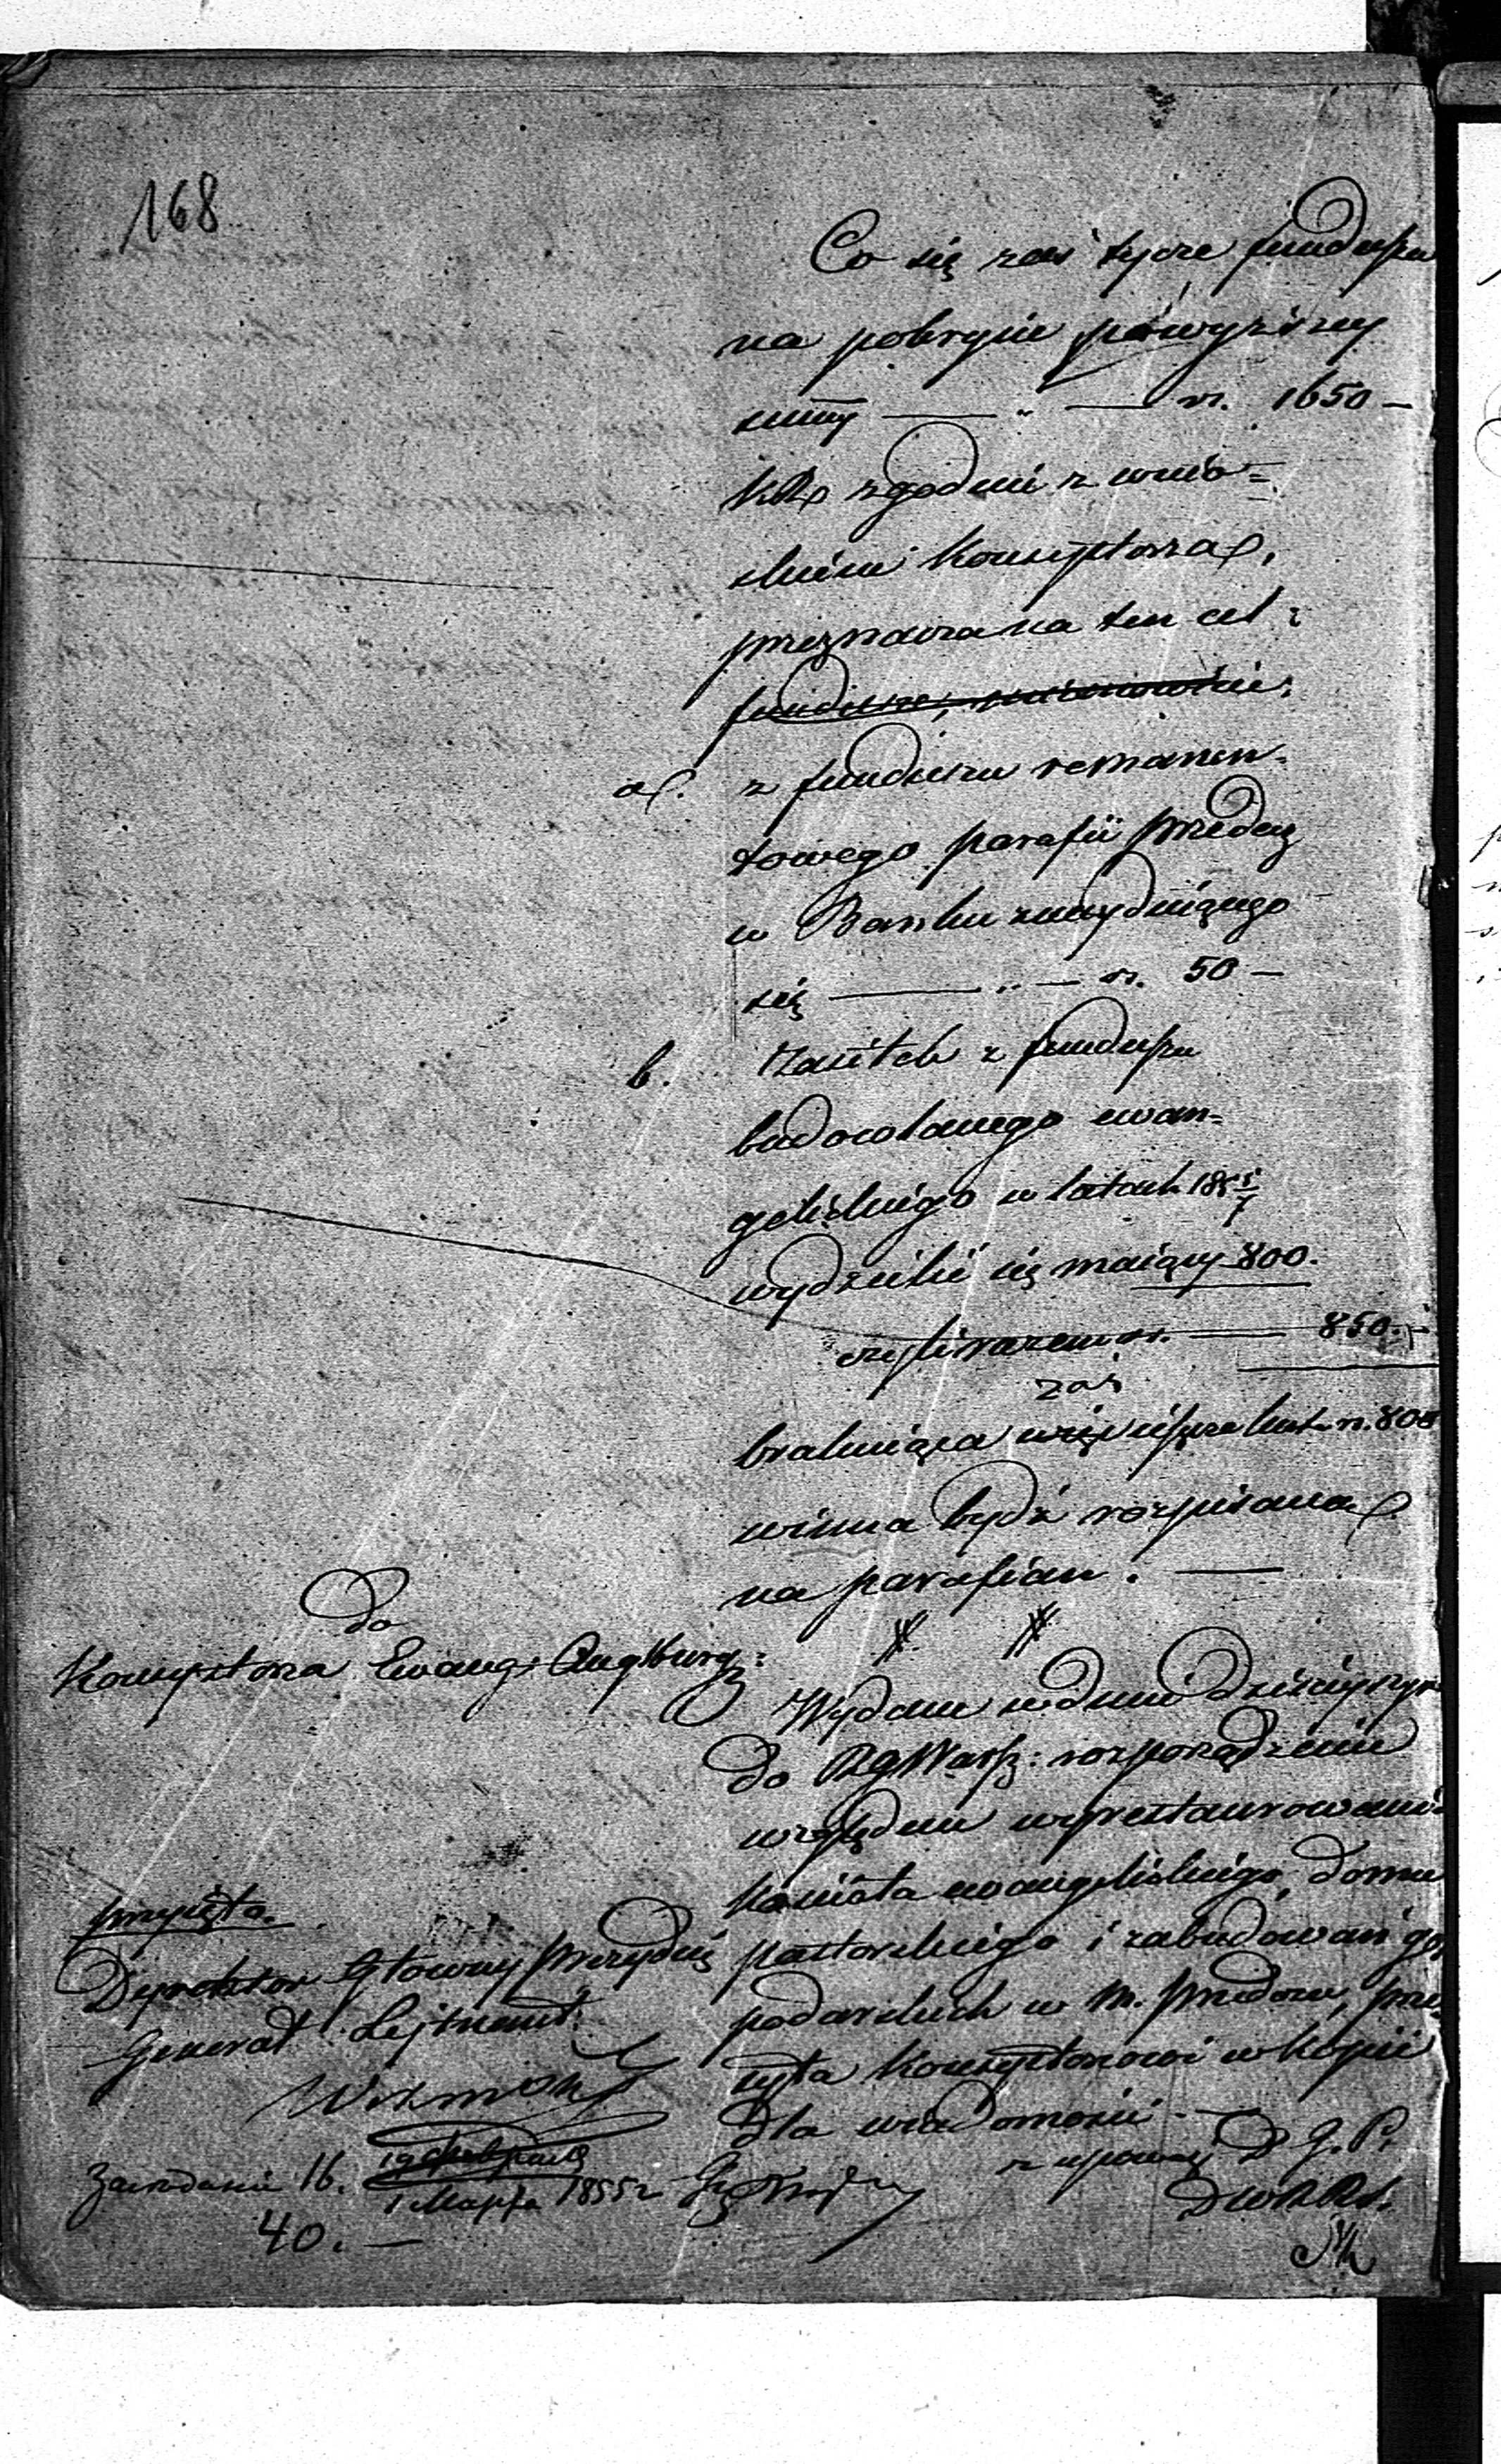 168
Co się zaś tycze funduszu
na pokrycie powyższey
summy — „ — rs. 1650 —
KR zgodnie z wnio=
skiem Konsystorza,
przeznacza na ten cel:
fundusze, mianowicie:
a/. z funduszu remanen=
towego parafii Przedecz
w Banku znaydującego
się — „ — rs. 50 —
b. Zasiłek z funduszu
budowlanego ewan=
gelickiego w latach 185 5/7
wydzielić się maiący 800.
czyli razem rs. — 850. —
zaś
brakuiąca więc reszta rs. 800
winna bydź rozpisana
na parafian. —
Do
Konsystorza Ewang: Augsburg:
Wydane w dniu dzisieyszym
do RGWarsz: rozporządzenie
względem wyrestaurowania
kościoła ewangelickiego, domu
pastorskiego i zabudowań gos
podarskich w m. Przedczu, prze
syła Konsystorzowi w kopii
dla wiadomości. —
przyięto.
Dyrektor Główny Prezyduią
Generał Lejtnant
z upoważ D. G. P.
16. 1 Марта 1855 r.
40. —